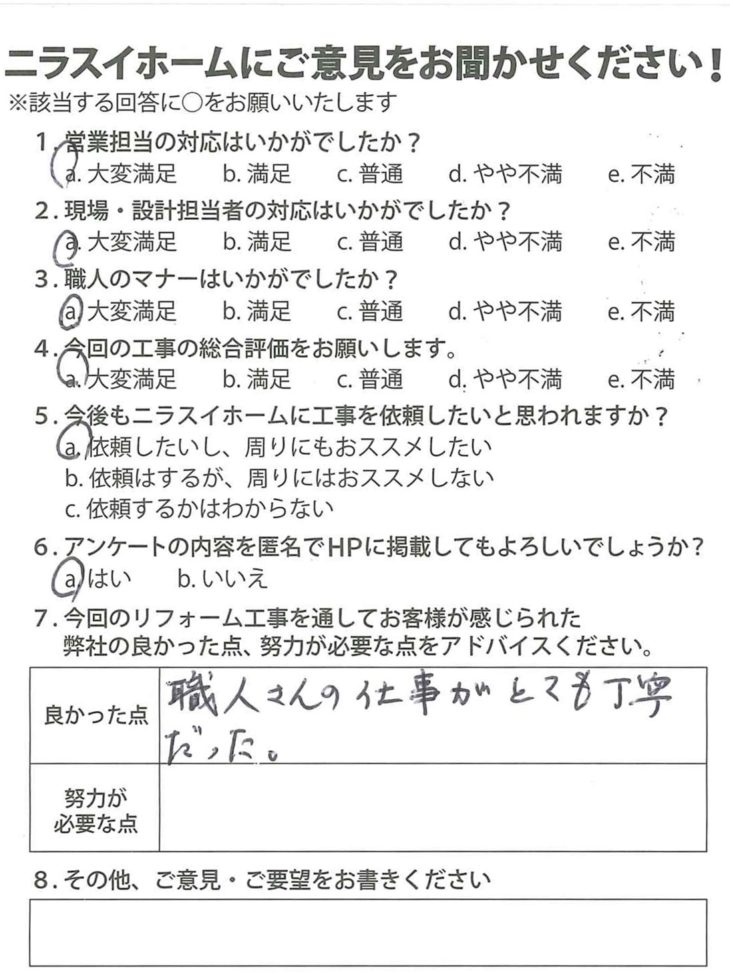 ニラスイホームにご意見をお聞かせください！
※該当する回答に○をお願いいたします
1．営業担当の対応はいかがでしたか？
a. 大変満足　b. 満足　c. 普通　d. やや不満　e. 不満
2．現場・設計担当者の対応はいかがでしたか？
a. 大変満足　b. 満足　c. 普通　d. やや不満　e. 不満
3．職人のマナーはいかがでしたか？
a. 大変満足　b. 満足　c. 普通　d. やや不満　e. 不満
4．今回の工事の総合評価をお願いします。
a. 大変満足　b. 満足　c. 普通　d. やや不満　e. 不満
5．今後もニラスイホームに工事を依頼したいと思われますか？
a. 依頼したいし、周りにもおススメしたい
b. 依頼はするが、周りにはおススメしない
c. 依頼するかはわからない
6．アンケートの内容を匿名でHPに掲載してもよろしいでしょうか？
a. はい　b. いいえ
7．今回のリフォーム工事を通してお客様が感じられた
弊社の良かった点、努力が必要な点をアドバイスください。
良かった点
職人さんの仕事がとても丁寧
だった。
努力が
必要な点
8．その他、ご意見・ご要望をお書きください